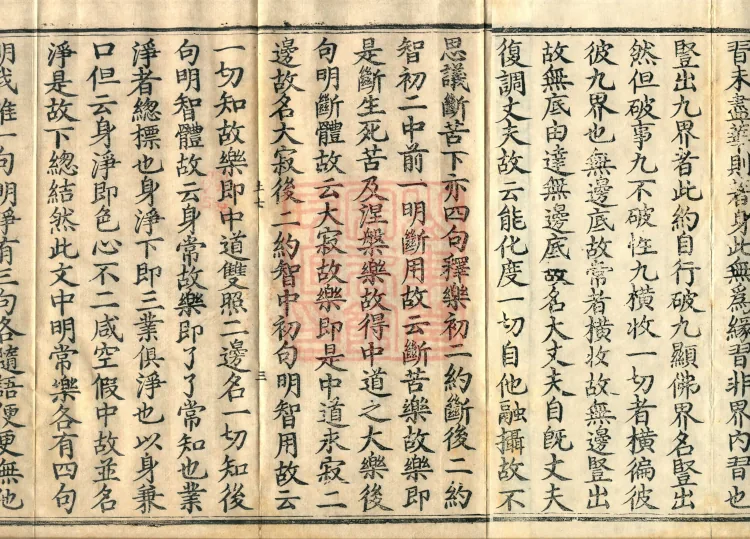 習未盡義則若身此無爲緣習非界內習也
豎出九界者此約自行破九顯佛界名豎出
然但破事九不破性九橫收一切者橫徧彼
彼九界也無邊底故常者橫收故無邊豎出
故無底由達無邊底故名大丈夫自旣丈夫
復調丈夫故云能化度一切自他融攝故不
思議斷苦下亦四句釋樂初二約斷後二約
智初二中前一明斷用故云斷苦樂故樂即
是斷生死苦及涅槃樂故得中道之大樂後
句明斷體故云大寂故樂即是中道永寂二
邊故名大寂後二約智中初句明智用故云
一切知故樂即中道雙照二邊名一切知後
句明智體故云身常故樂即了了常知也業
淨者總標也身淨下即三業俱淨也以身兼
口但云身淨即色心不二咸空假中故並名
淨是故下總結然此文中明常樂各有四句
明我唯一句明淨有三句各隨語便更無他